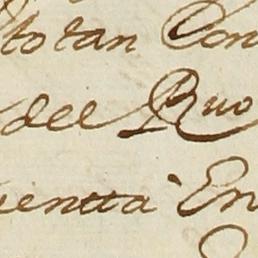 totan Con
del Ruo
uentta En